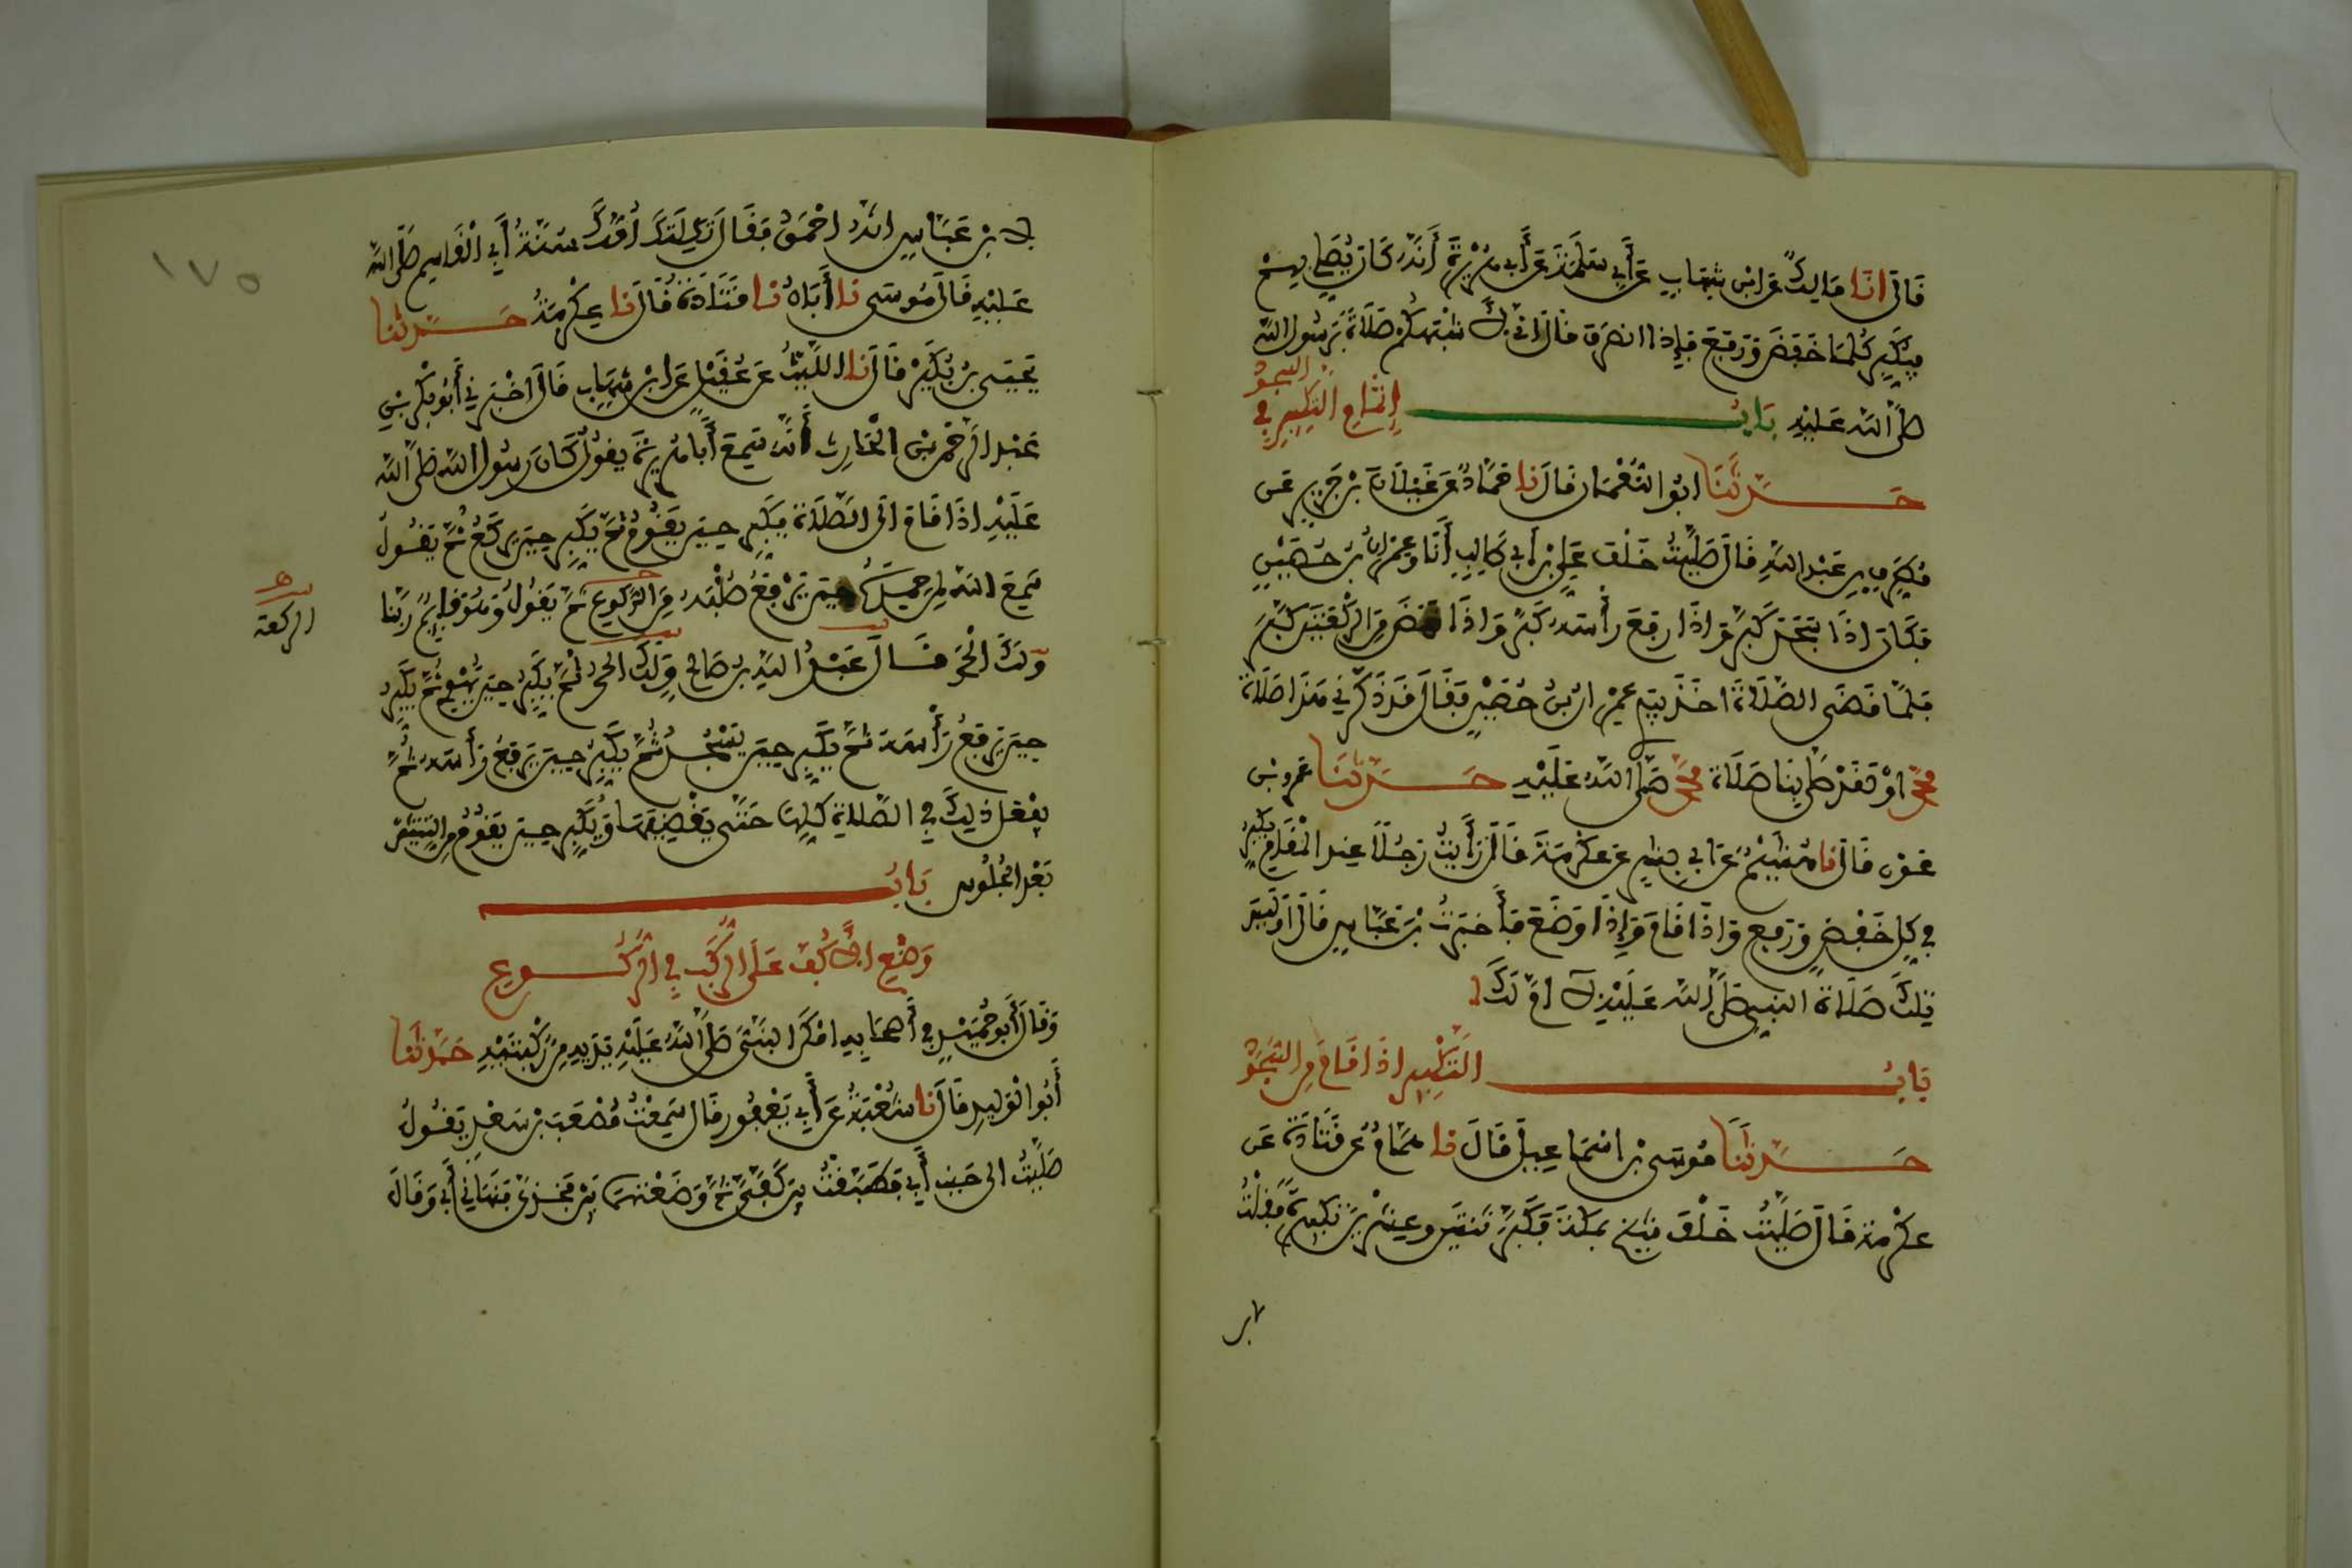 قَالَ انَا مَالِكٌ عَنِ ابْنِ شِهَابٍ عَنْ أَبِي سَلَمَةَ عَنْ أَبِي هُرَيْرَةَ أَنَّهُ كَانَ يُصَلِّي بِهِمْ
فَيُكَبِّرُ كُلَّمَا خَفَضَ وَرَفَعَ فَإِذَا انصَرَفَ قَالَ انِّي لَأَشْبَهُكُمْ صَلَاةً بِرَسُولِ اللَّهِ
صَلَّى اللَّهُ عَلَيْهِ بَابُ إِتْمَامِ التَّكْبِيرِ فِي السُّجُودِ
حَدَّثَنَا ابُو النُّعْمَانِ قَالَ نا حَمَّادٌ عَنْ غَيْلَانَ بْنِ جَرِيرٍ عَن
مُطَرِّفِ بْنِ عَبْدِ اللَّهِ قَالَ صَلَّيْتُ خَلْفَ عَلِيِّ بْنِ أَبِي طَالِبٍ أَنَا وَعِمْرَانُ بْنُ حُصَيْنٍ
فَكَانَ اذَا سَجَدَ كَبَّرَ وَاذَا رَفَعَ رَأْسَهُ كَبَّرَ وَاذَا نَهَضَ مِنَ الرَّكْعَتَيْنِ كَبَّرَ
فَلَمَّا قَضَى الصَّلَاةَ اخَذَ بِيَدِي عِمْرَانُ بْنُ حُصَيْنٍ فَقَالَ قَدْ ذَكَّرَنِي هَذَا صَلَاةَ
مُحَمَّدٍ اوْ لَقَدْ صَلَّى بِنَا صَلَاةَ مُحَمَّدٍ صَلَّى اللَّهُ عَلَيْهِ حَدَّثَنَا عَمْرُو بْنُ
عَوْنٍ قَالَ نا هُشَيْمٌ عَنْ أَبِي بِشْرٍ عَنْ عِكْرِمَةَ قَالَ رَأَيْتُ رَجُلًا عِندَ الْمَقَامِ يُكَبِّرُ
فِي كُلِّ خَفْضٍ وَرَفْعٍ وَاذَا قَامَ وَإِذَا وَضَعَ فَأَخْبَرْتُ بْنَ عَبَّاسٍ قَالَ أَوَلَيْسَ
تِلْكَ صَلَاةَ النَّبِيِّ صَلَّى اللَّهُ عَلَيْهِ لَا امَّ لَكَ
بَابُ التَّكْبِيرِ اذَا قَامَ مِنَ السُّجُودِ
حَدَّثَنَا مُوسَى بْنُ اسْمَاعِيلَ قَالَ نا هَمَّامٌ عَنْ قَتَادَةَ عَن
عِكْرِمَةَ قَالَ صَلَّيْتُ خَلْفَ شَيْخٍ بِمَكَّةَ فَكَبَّرَ ثِنتَيْنِ وَعِشْرِينَ تَكْبِيرَةً فَقُلْتُ
لابن
١٧٥
لِابْنِ عَبَّاسٍ انَّهُ احْمَقُ فَقَالَ ثَكِلَتْكَ أُمُّكَ سُنَّةُ أَبِي الْقَاسِمِ صَلَّى اللَّهُ
عَلَيْهِ قَالَ مُوسَى نا أَبَانُ نا قَتَادَةُ قَالَ نا عِكْرِمَةُ حَدَّثَنَا
يَحْيَى بْنُ بُكَيْرٍ قَالَ نا اللَّيْثُ عَنْ عُقَيْلٍ عَنِ ابْنِ شِهَابٍ قَالَ اخْبَرَنِي أَبُو بَكْرِ بْنُ
عَبْدِ الرَّحْمَنِ بْنِ الْحَارِثِ أَنَّهُ سَمِعَ أَبَا هُرَيْرَةَ يَقُولُ كَانَ رَسُولُ اللَّهِ صَلَّى اللَّهُ
عَلَيْهِ اذَا قَامَ الَى الصَّلَاةِ يُكَبِّرُ حِينَ يَقُومُ ثُمَّ يُكَبِّرُ حِينَ يَرْكَعُ ثُمَّ يَقُولُ
سَمِعَ اللَّهُ لِمَنْ حَمِدَهُ حِينَ يَرْفَعُ صُلْبَهُ مِنَ الرُّكُوعِ ثُمَّ يَقُولُ وَهُوَ قَائِمٌ رَبَّنَا
الركعة
وَلَكَ الْحَمْدُ قَالَ عَبْدُ اللَّهِ بْنُ صَالِحٍ وَلَكَ الْحَمْدُ ثُمَّ يُكَبِّرُ حِينَ يَهْوِي ثُمَّ يُكَبِّرُ
حِينَ يَرْفَعُ رَأْسَهُ ثُمَّ يُكَبِّرُ حِينَ يَسْجُدُ ثُمَّ يُكَبِّرُ حِينَ يَرْفَعُ رَأْسَهُ ثُمَّ
يَفْعَلُ ذَلِكَ فِي الصَّلَاةِ كُلِّهَا حَتَّى يَقْضِيَهَا وَيُكَبِّرُ حِينَ يَقُومُ مِنَ الثِّنْتَيْنِ
بَعْدَ الْجُلُوسِ بَابُ
وَضْعِ الْأَكُفِّ عَلَى الرُّكَبِ فِي الرُّكُوعِ
وَقَالَ أَبُو حُمَيْدٍ فِي أَصْحَابِهِ امْكَنَ النَّبِيُّ صَلَّى اللَّهُ عَلَيْهِ يَدَيْهِ مِنْ رُكْبَتَيْهِ حَدَّثَنَا
أَبُو الْوَلِيدِ قَالَ نا شُعْبَةُ عَنْ أَبِي يَعْفُورٍ قَالَ سَمِعْتُ مُصْعَبَ بْنَ سَعْدٍ يَقُولُ
صَلَّيْتُ الَى جَنبِ أَبِي فَطَبَّقْتُ بَيْنَ كَفَّيَّ ثُمَّ وَضَعْتُهُمَا بَيْنَ فَخِذَيَّ فَنَهَانِي أَبِي وَقَالَ